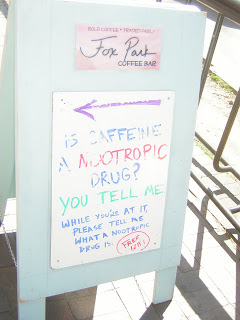 BOLD COFFEE
Fox Park
COFFEE BAR
IS CAFFEINE
A NOOTROPIC
DRUG?
YOU TELL ME
WHILE YOU'RE AT IT,
PLEASE TELL ME
WHAT A NOOTROPIC
DRUG IS.
FREE